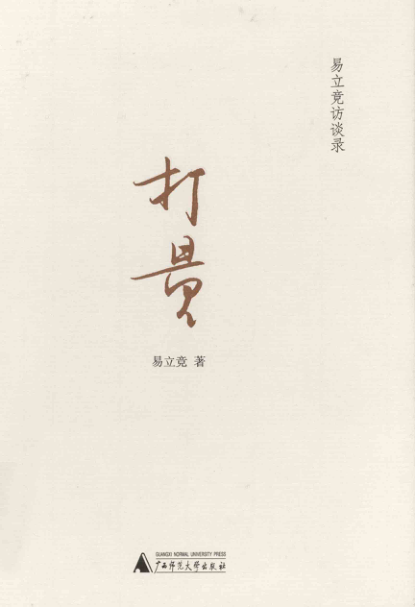 易立竞访谈录
打量
易立竞 著
GUANGXI NORMAL UNIVERSITY PRESS
广西师范大学出版社